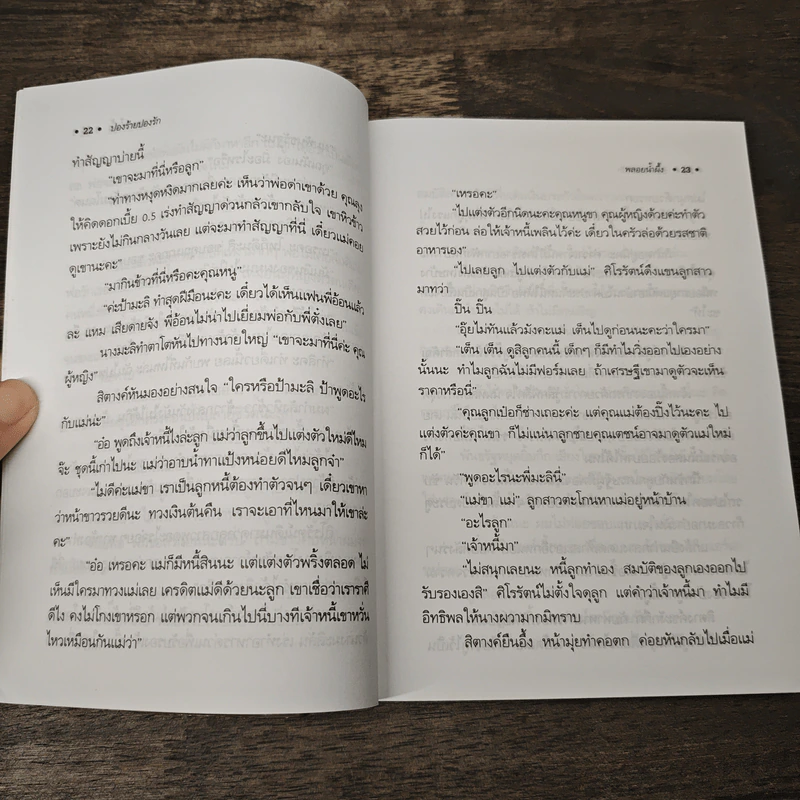 • 22 • ปองร้ายปองรัก
ทำสัญญาบ่ายนี้
"เขาจะมาที่นี่หรือลูก"
"ท่าทางหงุดหงิดมากเลยค่ะ เห็นว่าพ่อด่าเขาด้วย คุณลุง
ให้คิดดอกเบี้ย 0.5 เร่งทำสัญญาด่วนกลัวเขากลับใจ เขาหิวข้าว
เพราะยังไม่กินกลางวันเลย แต่จะมาทำสัญญาที่นี่ เดี๋ยวแม่คอย
ดูเขานะคะ"
"มากินข้าวที่นี่หรือคะคุณหนู"
"ค่ะป้ามะลิ ทำสุดฝีมือนะคะ เดี๋ยวได้เห็นแฟนพี่อ้อนแล้ว
ละ แหม เสียดายจัง พี่อ้อนไม่น่าไปเยี่ยมพ่อกับพี่ตั๋งเลย"
นางมะลิทำตาโตหันไปทางนายใหญ่ "เขาจะมาที่นี่ค่ะ คุณ
ผู้หญิง"
สิตางค์หันมองอย่างสนใจ "ใครหรือป้ามะลิ ป้าพูดอะไร
กับแม่น่ะ"
"อ๋อ พูดถึงเจ้าหนี้ไงล่ะลูก แม่ว่าลูกขึ้นไปแต่งตัวใหม่ดีไหม
จ๊ะ ชุดนี้เก่าไปนะ แม่ว่าอาบน้ำทาแป้งหน่อยดีไหมลูกจ๋า"
"ไม่ดีค่ะแม่ขา เราเป็นลูกหนี้ต้องทำตัวจนๆ เดี๋ยวเขาหา
ว่าหน้าขาวรวยดีนะ ทวงเงินต้นคืน เราจะเอาที่ไหนมาให้เขาล่ะ
คะ"
"อ๋อ เหรอคะ แม่ก็มีหนี้สินนะ แต่แต่งตัวพริ้งตลอด ไม่
เห็นมีใครมาทวงแม่เลย เครดิตแม่ดีด้วยนะลูก เขาเชื่อว่าเราราศี
ดีไง คงไม่โกงเขาหรอก แต่พวกจนเกินไปนี่บางทีเจ้าหนี้เขาหวั่น
ไหวเหมือนกันแม่ว่า"
พลอยน้ำผึ้ง • 23 •
"เหรอคะ"
"ไปแต่งตัวอีกนิดนะคะคุณหนูขา คุณผู้หญิงด้วยค่ะทำตัว
สวยไว้ก่อน ล่อให้เจ้าหนี้เพลินไว้ค่ะ เดี๋ยวในครัวล่อด้วยรสชาติ
อาหารเอง"
"ไปเลยลูก ไปแต่งตัวกับแม่" ศิโรรัตน์ดึงแขนลูกสาว
มาทว่า
ปี๊น ปี๊น
"อุ๊ยไม่ทันแล้วมังคะแม่ เต็นไปดูก่อนนะคะว่าใครมา"
"เต็น เต็น ดูสิลูกคนนี้ เด็กๆ ก็มีทำไมวิ่งออกไปเองอย่าง
นั้นนะ ทำไมลูกฉันไม่มีฟอร์มเลย ถ้าเศรษฐีเขามาดูตัวจะเห็น
ราคาหรือนี่"
"คุณลูกเปิ่อก็ช่างเถอะค่ะ แต่คุณแม่ต้องปิ๊งไว้นะคะ ไป
แต่งตัวค่ะคุณขา ก็ไม่แน่นาลูกชายคุณเตชน์อาจมาดูตัวแม่ใหม่
ก็ได้"
"พูดอะไรนะพี่มะลินี่"
"แม่ขา แม่" ลูกสาวตะโกนหาแม่อยู่หน้าบ้าน
"อะไรลูก"
"เจ้าหนี้มา"
"ไม่สนุกเลยนะ หนี้ลูกทำเอง สมบัติของลูกเองออกไป
รับรองเองสิ" ศิโรรัตน์ไม่ตั้งใจดุลูก แต่คำว่าเจ้าหนี้มา ทำไมมี
อิทธิพลให้นางผวามากมิทราบ
สิตางค์ยืนอึ้ง หน้ามุ่ยทำคอตก ค่อยหันกลับไปเมื่อแม่